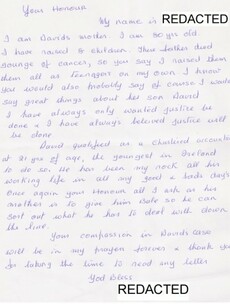 Your Honour
My name is REDACTED
I am Davids Mother. I am 80 yrs old.
I have raised 8 children. Their father died
younge of cancer, so you say I raised them
them all as Teenagers on my own. I know
you would also probly say of cause I would
say great things about her son David
I have always only wanted justice be
done & I have always believed justice will
be done
David qualified as a Chartered accountant
at 21 yrs of age, the youngest in Ireland
to do so. He has been my rock all his
working life in all my good & bads days
Once again your Honour all I ask as his
mother is to give him bale so he can
sort out what he has to deal with down
the line.
Your compassion in Davids case
will be in my prayers forever & thank you
for taking the time to read my letter
God Bless
REDACTED